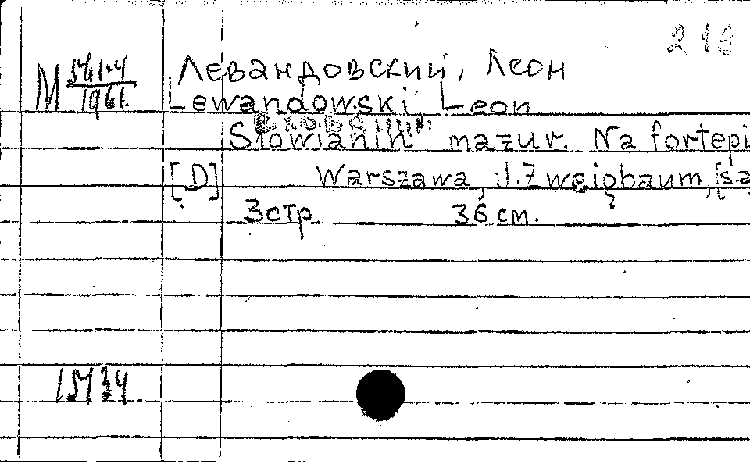 218
М 541-4 Левандовский, Леон
1961 Lewandowski Leon
Słowianin" mazur. Na fortepi
[D] Warszawa, J. Zweigbaum, [s.a
3 стр. 36 см.
15434.